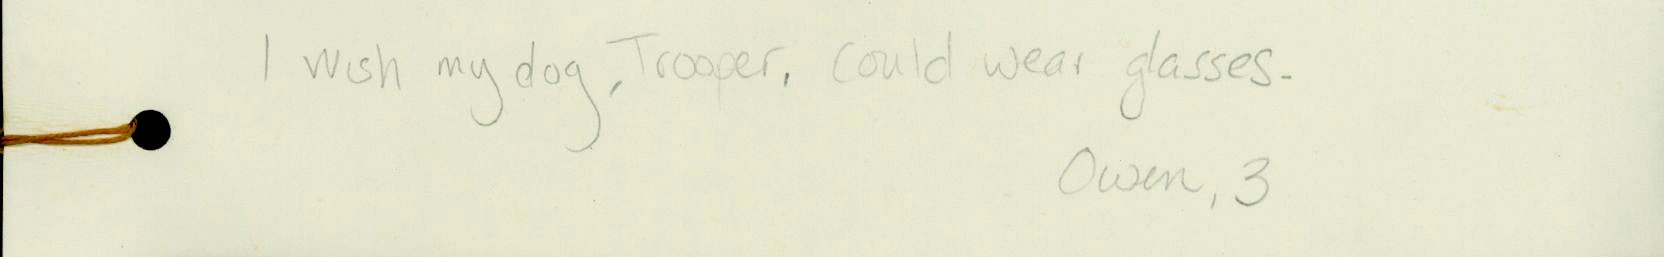 I wish my dog, Trooper, could wear glasses.
Owen, 3